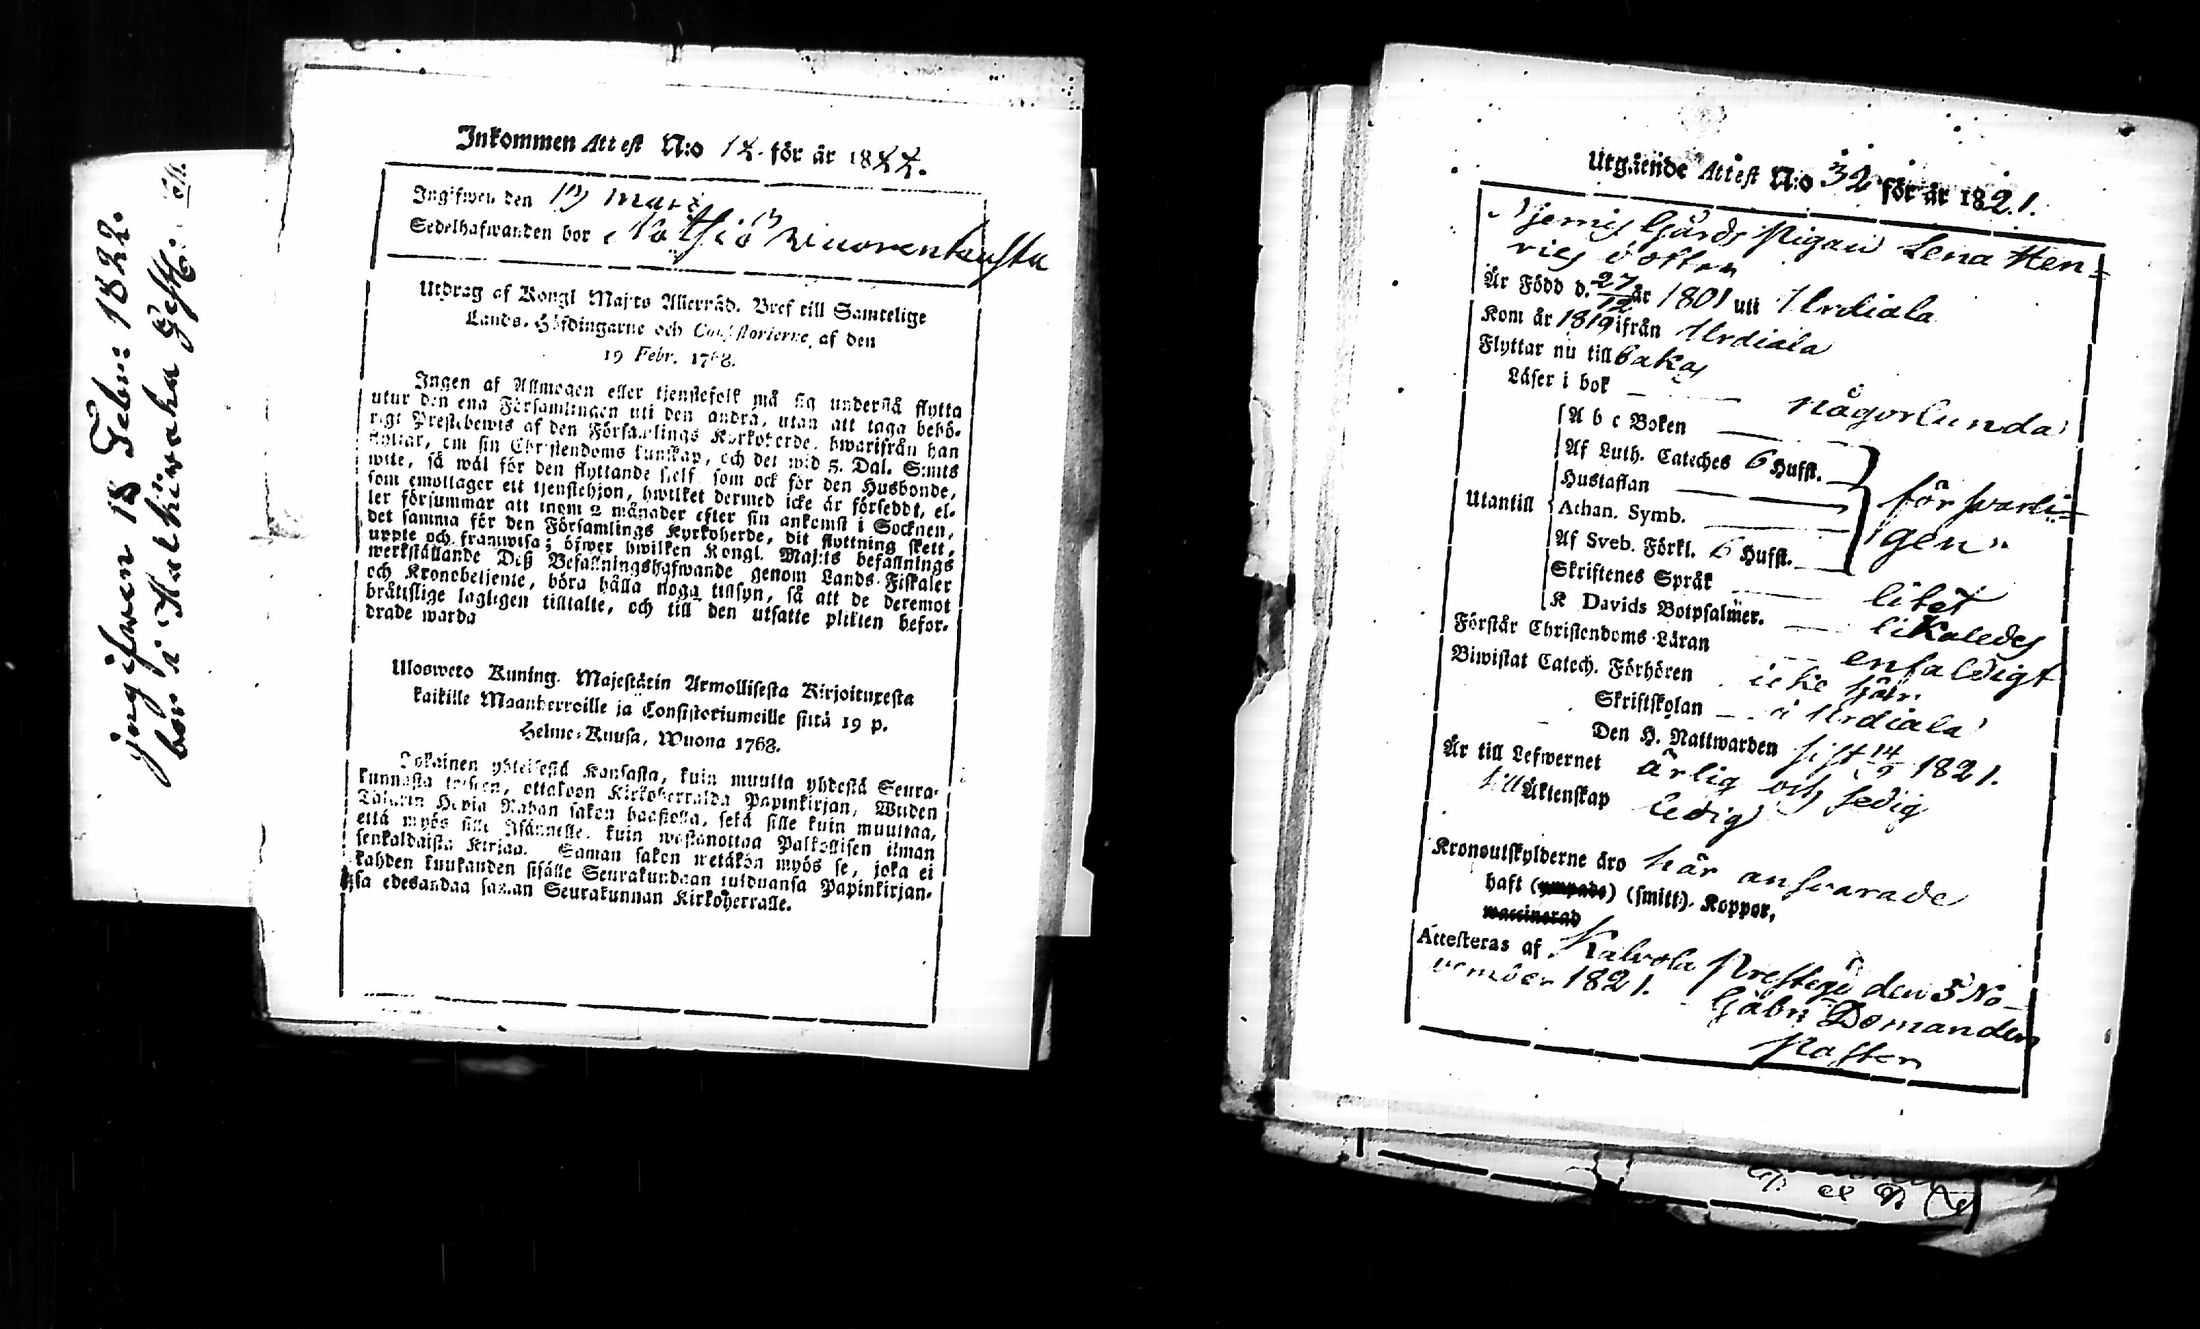 ingifwen 18 Febr: 1822.
bor i Halkiwaha Gest.
Inkommen Attest N:o 12. för år 1822.
Ingifwen den 19 Mars
Sedelhafwanden bor
Utdrag af Kongl Maj:ts Allernåd. Bref till Samtelige
Lands-Höfdingarne och Consistorierne, af den
19 Febr. 1768.
Ingen af Allmogen eller tjenstefolk må sig understå flytta
utur den ena Församlingen uti den andra, utan att taga behö-
rigt Prestebewis af den Församlings Kyrkoherde, hwarifrån han
flyttar, om sin Christendoms kunskap, och det wid 5. Dal. S:mts
wite, så wäl för den flyttande sjelf som ock för den Husbonde,
som emottager ett tjenstehjon, hwilket dermed icke är förseddt, el-
ler försummar att inom 2 månader efter sin ankomst i Socknen,
det samma för den Församlings Kyrkoherde, dit flyttning skett,
uppte och framwisa; öfwer hwilken Kongl. Maj:ts befallnings
werkställande Deß Befallningshafwande genom Lands-Fiskaler
och Kronobetjente, böra hålla noga tillsyn, så att de deremot
bråttslige lagligen tilltalte, och till den utsatte plikten befor-
drade warda
Ulosweto Kuning. Majestätin Armollisesta Kirjoituxesta
kaikille Maanherroille ja Consistoriumeille siitä 19 p.
Helme-Kuusa, Wuona 1768.
Jokainen yhteisestä Kansasta, kuin muutta yhdestä Seura-
kunnasta toiseen, ottakoon Kirkoherralda Papinkirjan, Wiiden
Talarin Hopia Rahan sakon haastolla, sekä sille kuin muuttaa,
että myös sille Isännelle, kuin wastanottaa Palkollisen ilman
senkaldaista Kirjaa. Saman sakon wetäkön myös se, joka ei
kahden kuukauden sisälle Seurakundaan tulduansa Papinkirjan-
sa edesandaa saman Seurakunnan Kirkoherralle.
Utgående Attest N:o 32 för år 1821.
Njemis Gårds Pigan Lena Hen-
rics dotter
Är Född d. 27/12 år 1801 uti Urdiala
Kom år 1819 ifrån Urdiala
Flyttar nu tillbakas
Läser i bok någorlunda
A b c Boken
Af Luth. Cateches 6 Hufst.
Hustaflan försvarli-
Utantill Athan. Symb.
Af Sveb. Förkl. 6 Hufst. gen
Skriftenes Språk litet
K Davids Botpsalmer. likaledes
Förstår Christendoms Läran enfaldigt
Biwistat Catech. Förhören icke här
Skriftskolan i Urdiala
Den H. Nattwarden sist 14/9 1821.
Är till Lefwernet ärlig och sedig
till Äktenskap ledig
Kronoutskylderne äro här ansvarade
haft (ympade) (smitt). Koppor,
waccinerad
Attesteras af Kalvola Prestegd den 5 No-
vember 1821.
Gabr: Domander
Pastor